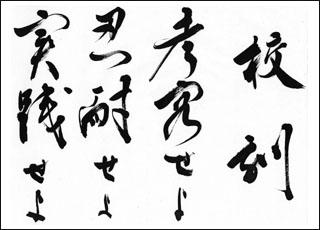 校訓
考察せよ
忍耐せよ
実践せよ